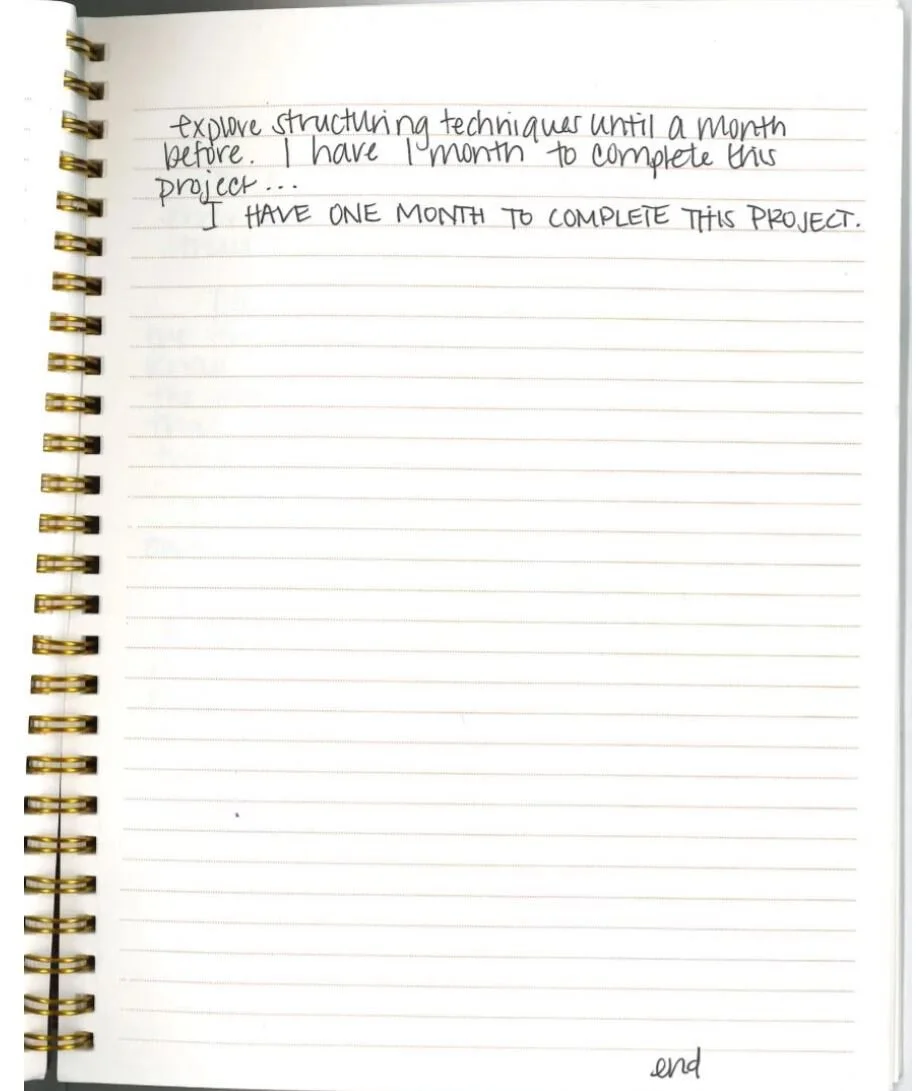 explore structuring techniques until a month
before. I have 1 month to complete this
project...
I HAVE ONE MONTH TO COMPLETE THIS PROJECT.
end